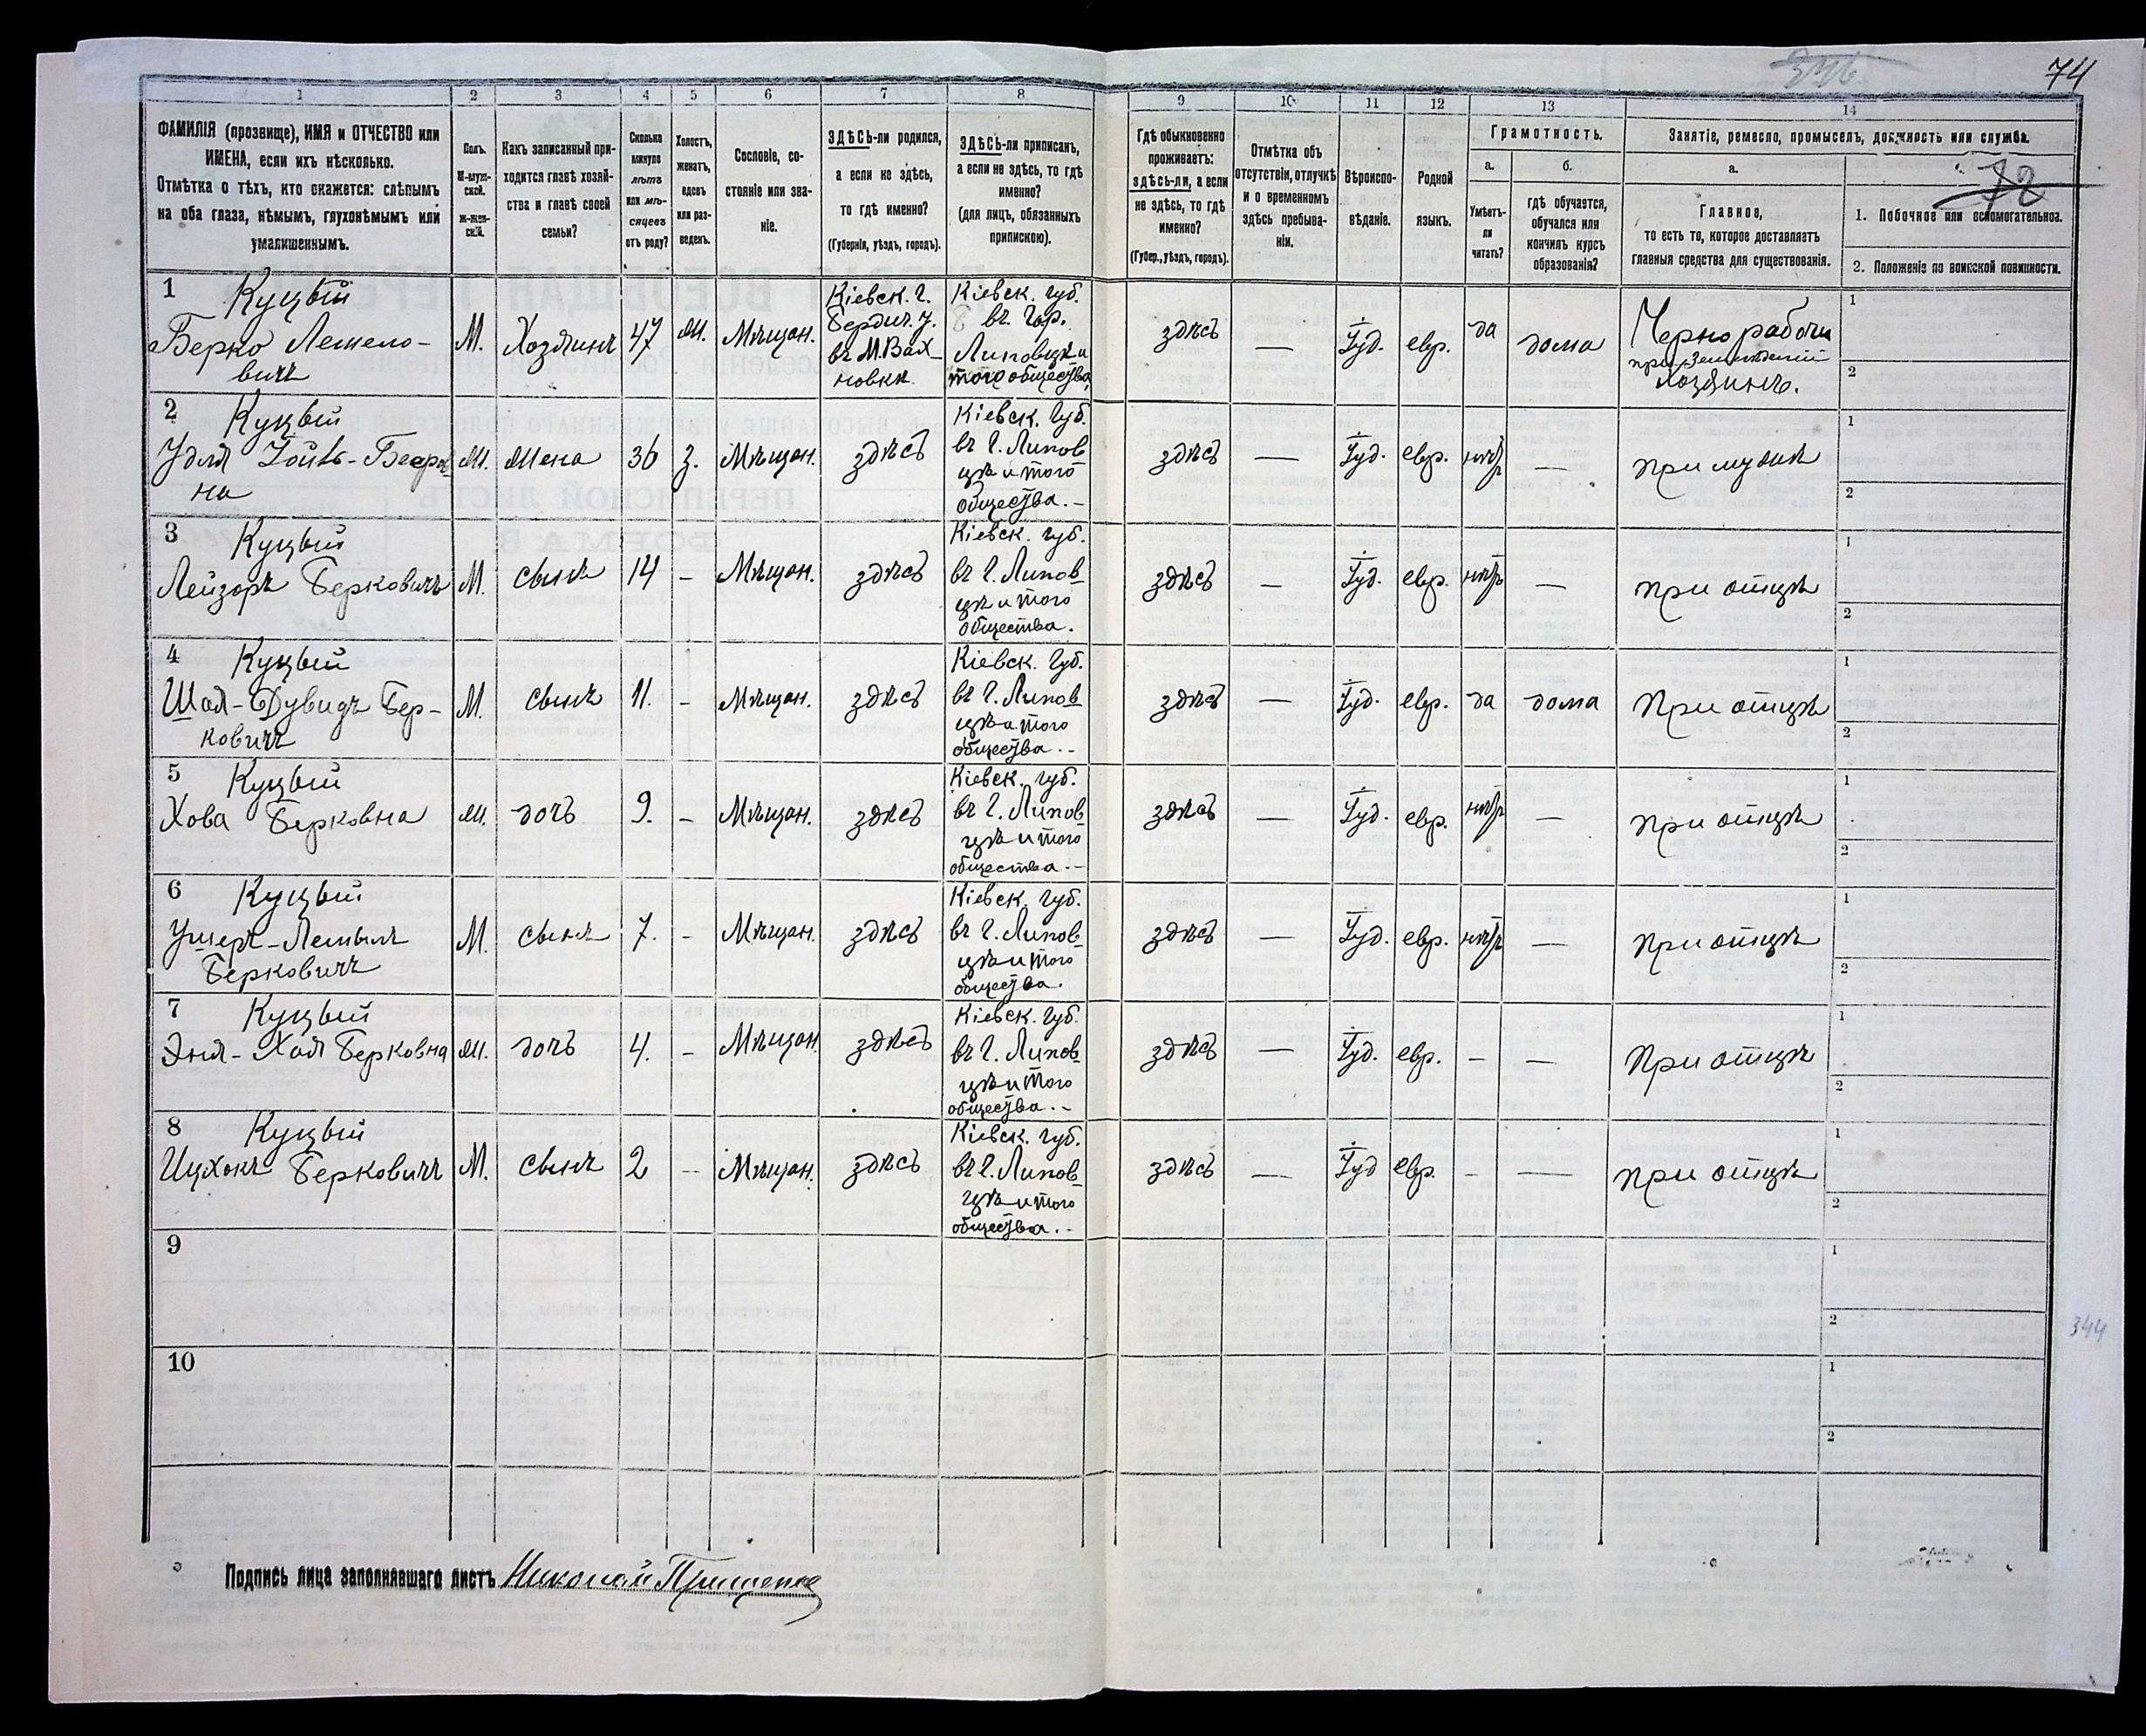 74
1 2 3 4 5 6 7 8 9 10 11 12 13 14
ФАМИЛІЯ (прозвище), ИМЯ и ОТЧЕСТВО или
ИМЕНА, если ихъ нѣсколько.
Отмѣтка о тѣхъ, кто окажется: слѣпымъ
на оба глаза, нѣмымъ, глухонѣмымъ или
умалишеннымъ.
Полъ.
М-муж-
ской.
Ж-жен-
скій.
Какъ записанный при-
ходится главѣ хозяй-
ства и главѣ своей
семьи?
Сколько
минуло
лѣтъ
или мѣ-
сяцевъ
отъ роду?
Холостъ,
женатъ,
вдовъ
или раз-
веденъ.
Сословіе, со-
стояніе или зва-
ніе.
ЗДѢСЬ-ли родился,
а если не здѣсь,
то гдѣ именно?
(Губернія, уѣздъ, городъ).
ЗДѢСЬ-ли приписанъ,
а если не здѣсь, то гдѣ
именно?
(для лицъ, обязанныхъ
припискою).
Гдѣ обыкновенно
проживаетъ:
здѣсь-ли, а если
не здѣсь, то гдѣ
именно?
(Губер., уѣздъ, городъ).
Отмѣтка объ
отсутствіи, отлучкѣ
и о временномъ
здѣсь пребыва-
ніи.
Вѣроиспо-
вѣданіе.
Родной
языкъ.
Грамотность.
а.
Умѣетъ-
ли
читать?
б.
гдѣ обучается,
обучался или
кончилъ курсъ
образованія?
Занятіе, ремесло, промыселъ, должность или служба.
а.
Главное,
то есть то, которое доставляетъ
главныя средства для существованія.
72
1. Побочное или вспомогательное.
2. Положеніе по воинской повинности.
1 Куцый
Берко Лемело-
вичъ
М.
Хозяинъ
47
ж.
Мѣщан.
Кіевск. г.
Бердич. у.
въ М. Вах-
новкк
Кіевск. губ.
въ гор.
Липовцки
того общества
здѣсь
—
Іуд.
евр.
да
дома
Чернорабочи
при
хозяинъ.
1
2
2 Куцый
Удля Іойнь-Беер-
на
ж.
жена
36
з.
Мѣщан.
здѣсь
Кіевск. Губ.
въ г. Липов
цѣ и того
общества. –
здѣсь
—
Іуд.
евр.
нѣтъ
—
при мужѣ
1
2
3 Куцый
Лейзоръ Берковичъ
М.
сынъ
14
–
Мѣщан.
здѣсь
Кіевск. губ.
въ г. Липов-
цѣ и того
общества.
здѣсь
—
Іуд.
евр.
нѣтъ
—
при отцѣ
1
2
4 Куцый
Шая-Дувидъ Бер-
ковичъ
М.
сынъ
11.
–
Мѣщан.
здѣсь
Кіевск. Губ.
въ г. Липов
цѣ и того
общества. -
здѣсь
—
Іуд.
евр.
да
дома
При отцѣ
1
2
5 Куцый
Хова Берковна
ж.
дочь
9.
–
Мѣщан.
здѣсь
Кіевск. губ.
въ г. Липов
цѣ и того
общества. -
здѣсь
—
Іуд.
евр.
нѣтъ
—
при отцѣ
1
2
6 Куцый
Ушеръ-Лемылъ
Берковичъ
М.
сынъ
7.
–
Мѣщан.
здѣсь
Кіевск. губ.
въ г. Липов-
цѣ и того
общества.
здѣсь
—
Іуд.
евр.
нѣтъ
—
при отцѣ
1
2
7 Куцый
Эня-Хая Берковна
ж.
дочь
4.
–
Мѣщан.
здѣсь
Кіевск. Губ.
въ г. Липов-
цѣ и того
общества. -
здѣсь
—
Іуд.
евр.
–
—
При отцѣ
1
2
8 Куцый
Ицхокъ Берковичъ
М.
сынъ
2
–
Мѣщан.
здѣсь
Кіевск. губ.
въ г. Липов-
цѣ и того
общества. -
здѣсь
—
Іуд
евр.
–
—
при отцѣ
1
2
9
1
2
344
10
1
2
Подпись лица заполнявшаго листъ Николай